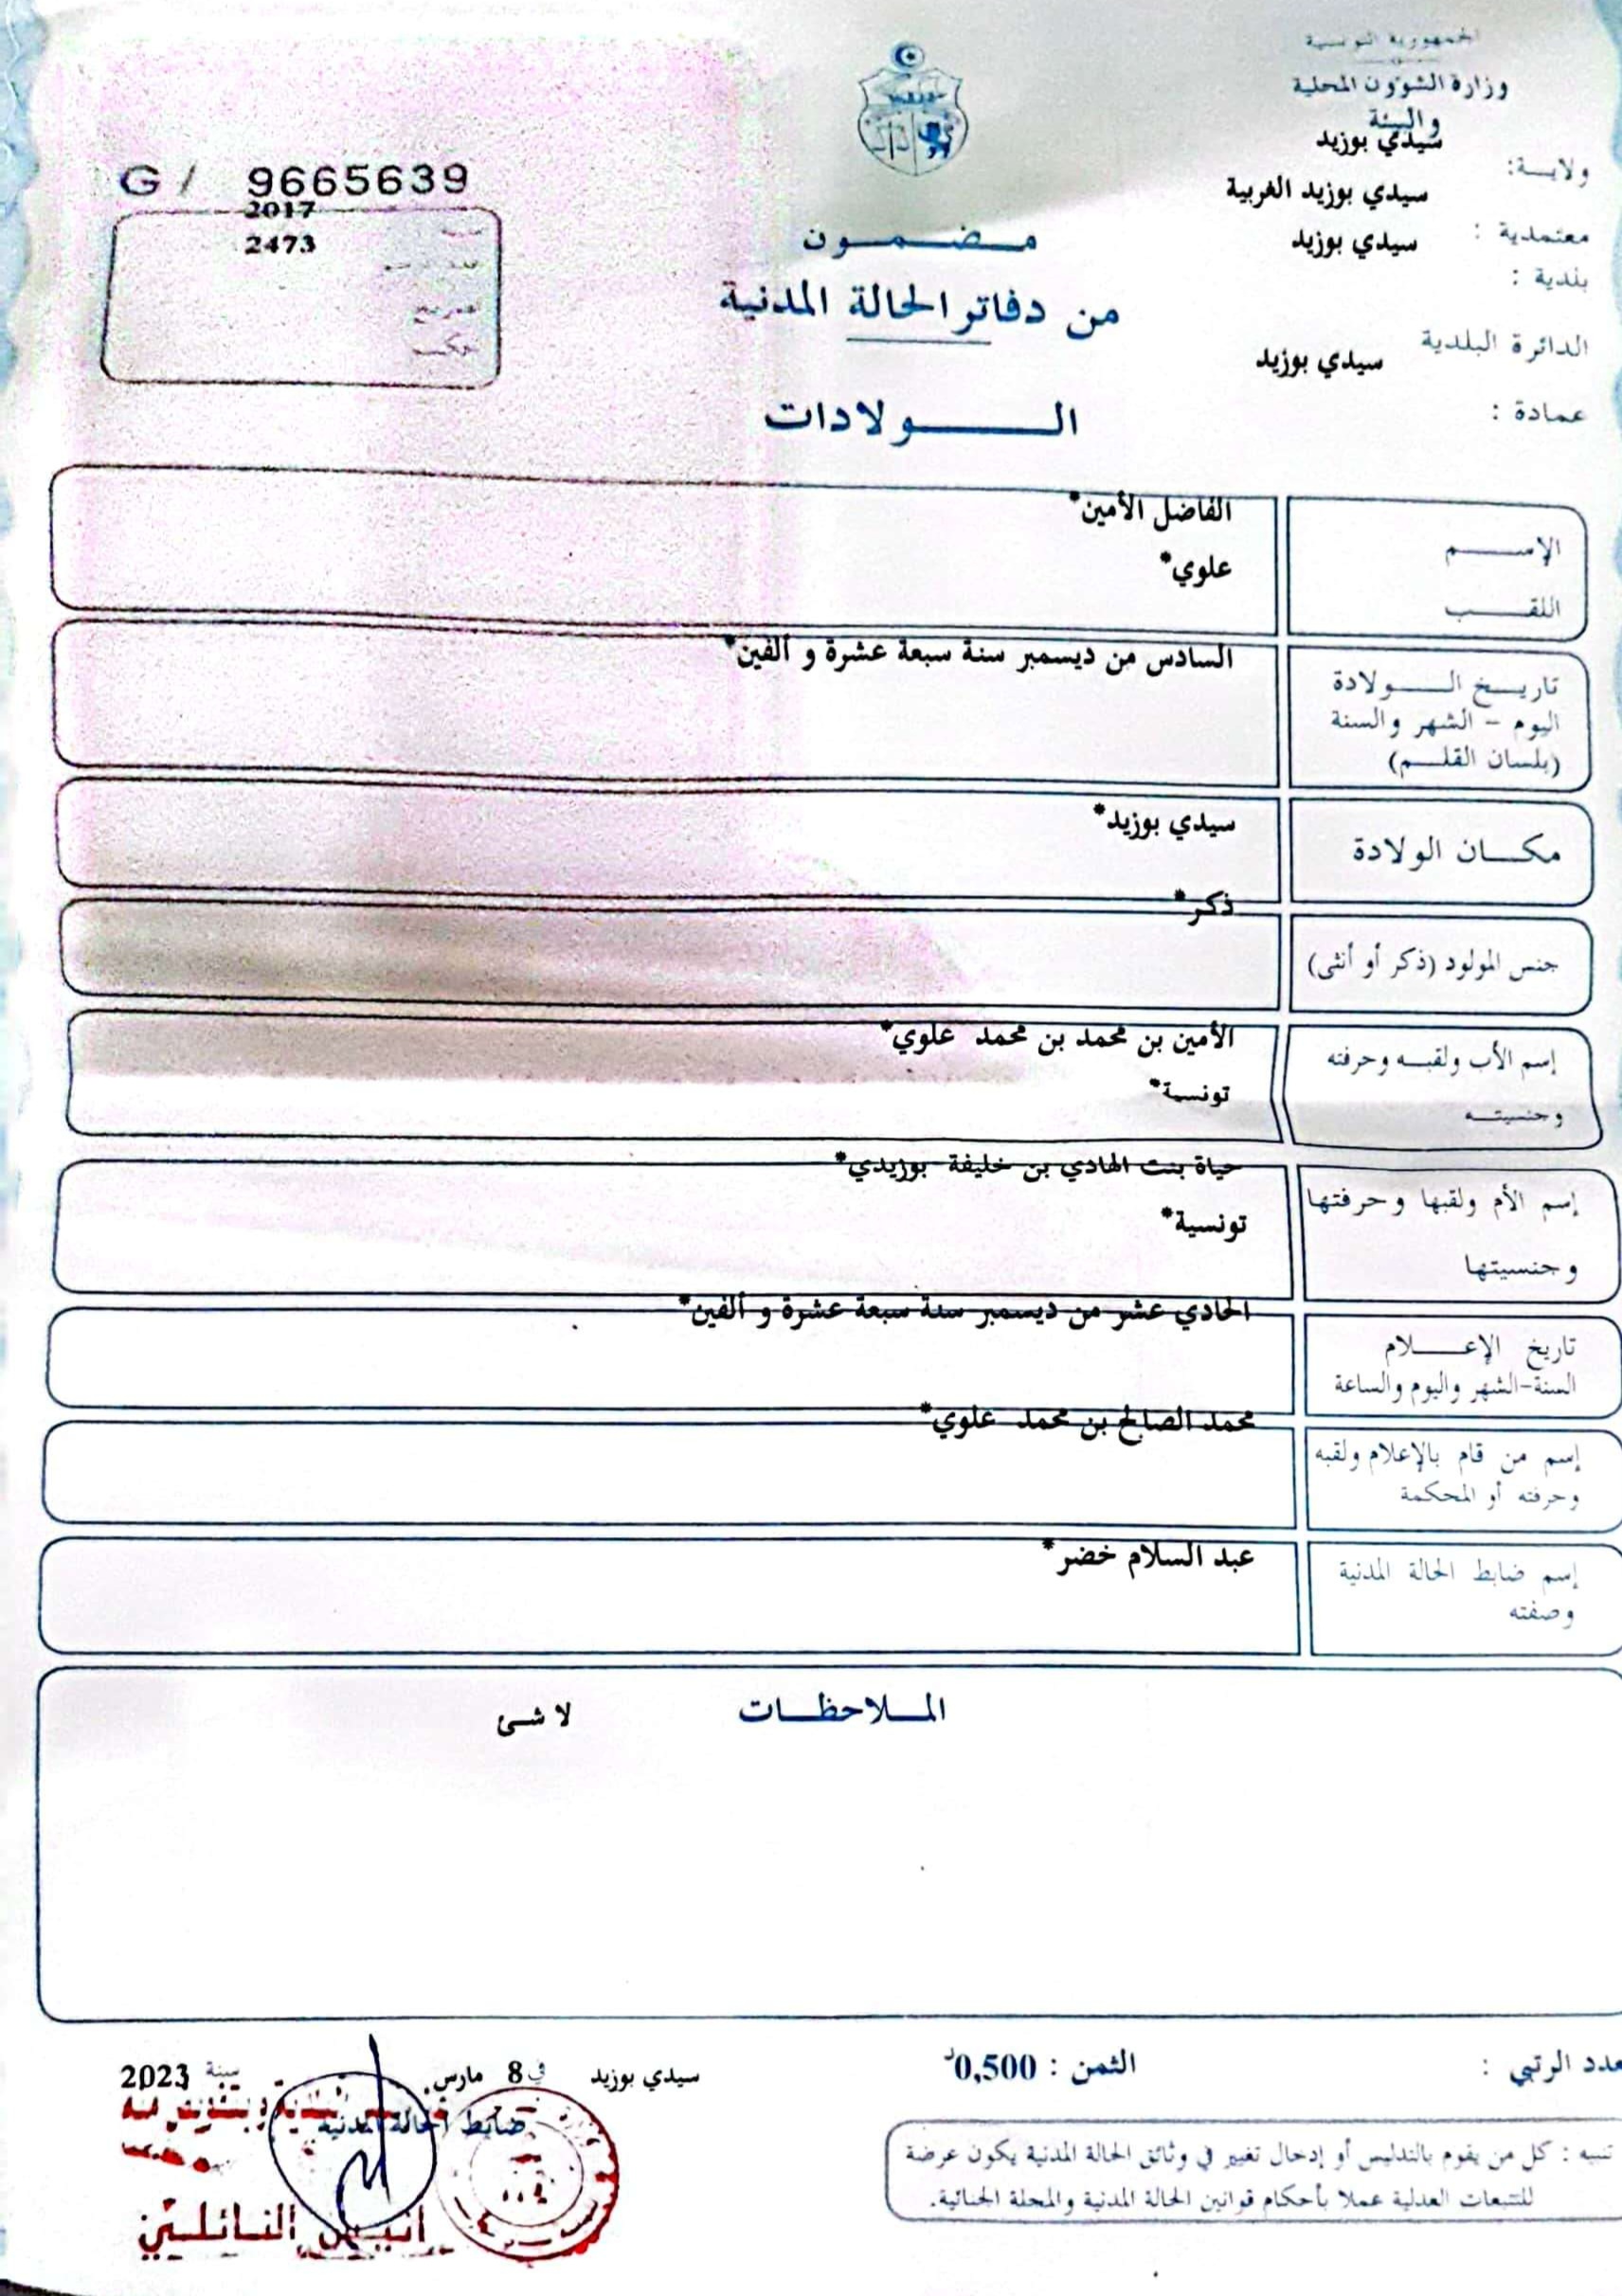 الجمهورية التونسية
وزارة الشؤون المحلية
والبيئة
ولاية: سيدي بوزيد
معتمدية : سيدي بوزيد الغربية
بلدية : سيدي بوزيد
الدائرة البلدية سيدي بوزيد
عمادة :
G / 9665639
سنة 2017
عدد الرسم 2473
مضمون
من دفاتر الحالة المدنية
الولادات
الإسم الفاضل الأمين*
اللقب علوي*
تاريخ الولادة السادس من ديسمبر سنة سبعة عشرة و ألفين*
اليوم - الشهر والسنة
(بلسان القلم)
مكان الولادة سيدي بوزيد*
جنس المولود (ذكر أو أنثى) ذكر*
إسم الأب ولقبه وحرفته الأمين بن محمد بن محمد علوي*
وجنسيته تونسية*
إسم الأم ولقبها وحرفتها حياة بنت الهادي بن خليفة بوزيدي*
وجنسيتها تونسية*
تاريخ الإعلام الحادي عشر من ديسمبر سنة سبعة عشرة و ألفين*
السنة-الشهر واليوم والساعة
إسم من قام بالإعلام ولقبه محمد الصالح بن محمد علوي*
وحرفته أو المحكمة
إسم ضابط الحالة المدنية عبد السلام خضر*
وصفته
الملاحظات لا شئ
عدد الرتبي :
الثمن : 0,500د
سيدي بوزيد في 8 مارس سنة 2023
ضابط الحالة المدنية
النائلي
تنبيه : كل من يقوم بالتدليس أو إدخال تغيير في وثائق الحالة المدنية يكون عرضة
للتتبعات العدلية عملا بأحكام قوانين الحالة المدنية والمجلة الجنائية.